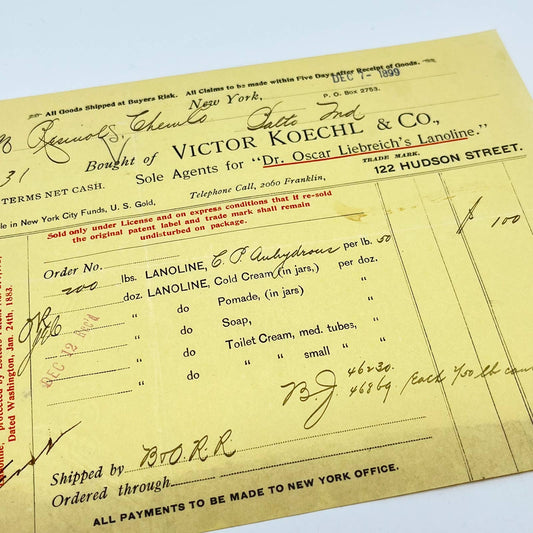 All Goods Shipped at Buyers Risk. All Claims to be made within Five Days after Receipt of Goods.
DEC 7- 1899
New York,
P. O. Box 2753.
Resinol Chem Co Balto Md
Bought of VICTOR KOECHL & CO.,
31
TERMS NET CASH.
Sole Agents for "Dr. Oscar Liebreich's Lanoline."
TRADE MARK.
Telephone Call, 2060 Franklin,
122 HUDSON STREET.
le in New York City Funds, U. S. Gold.
Sold only under License and on express conditions that if re-sold
the original patent label and trade mark shall remain
undisturbed on package.
$ 100
Order No.
200 lbs. LANOLINE, C. P. Anhydrous per lb. 50
doz. LANOLINE, Cold Cream (in jars,) per doz.
" do Pomade, (in jars)
" do Soap,
" do Toilet Cream, med. tubes,
" " " small "
DEC 12 Rec'd
Dated Washington, Jan. 24th. 1883.
BJ 46230.
46869. Each 1/50 lb can
Shipped by B&O. R. R
Ordered through
ALL PAYMENTS TO BE MADE TO NEW YORK OFFICE.